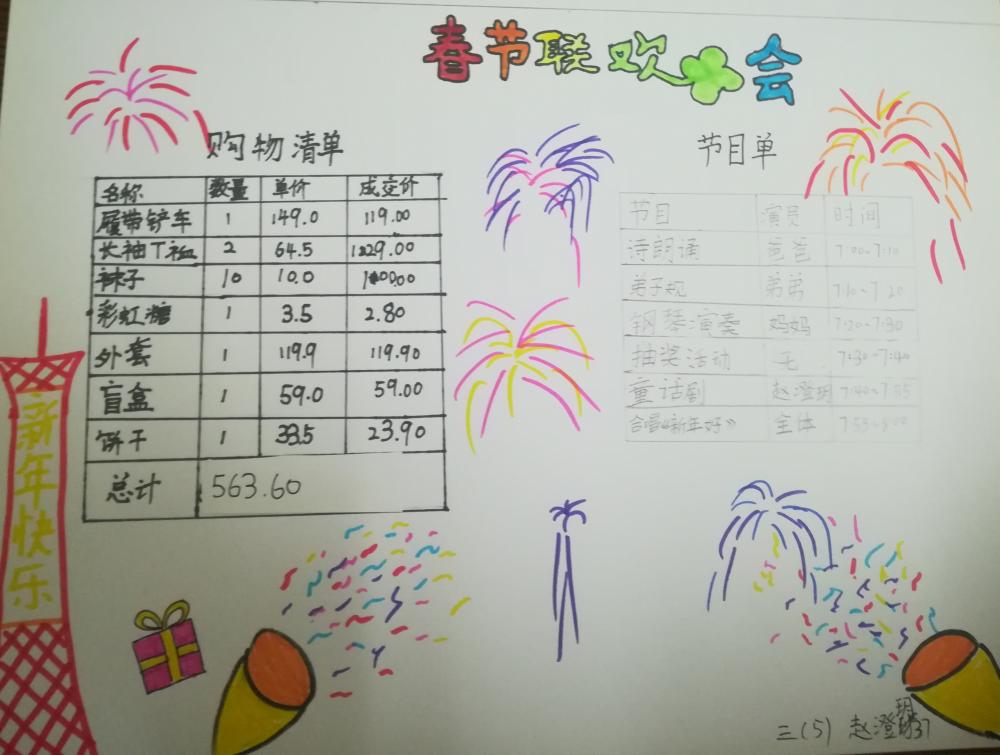 春节联欢会
购物清单
名称 数量 单价 成交价
履带铲车 1 149.0 119.00
长袖T恤 2 64.5 129.00
袜子 10 10.0 100.00
彩虹糖 1 3.5 2.80
外套 1 119.9 119.90
盲盒 1 59.0 59.00
饼干 1 33.5 23.90
总计 563.60
节目单
节目 演员 时间
诗朗诵 爸爸 7:00~7:10
弟子规 弟弟 7:10~7:20
钢琴演奏 妈妈 7:20~7:30
抽奖活动 无 7:30~7:40
童话剧 赵澄玥 7:40~7:55
合唱《新年好》 全体 7:55~8:00
新年快乐
三(5) 赵澄玥37